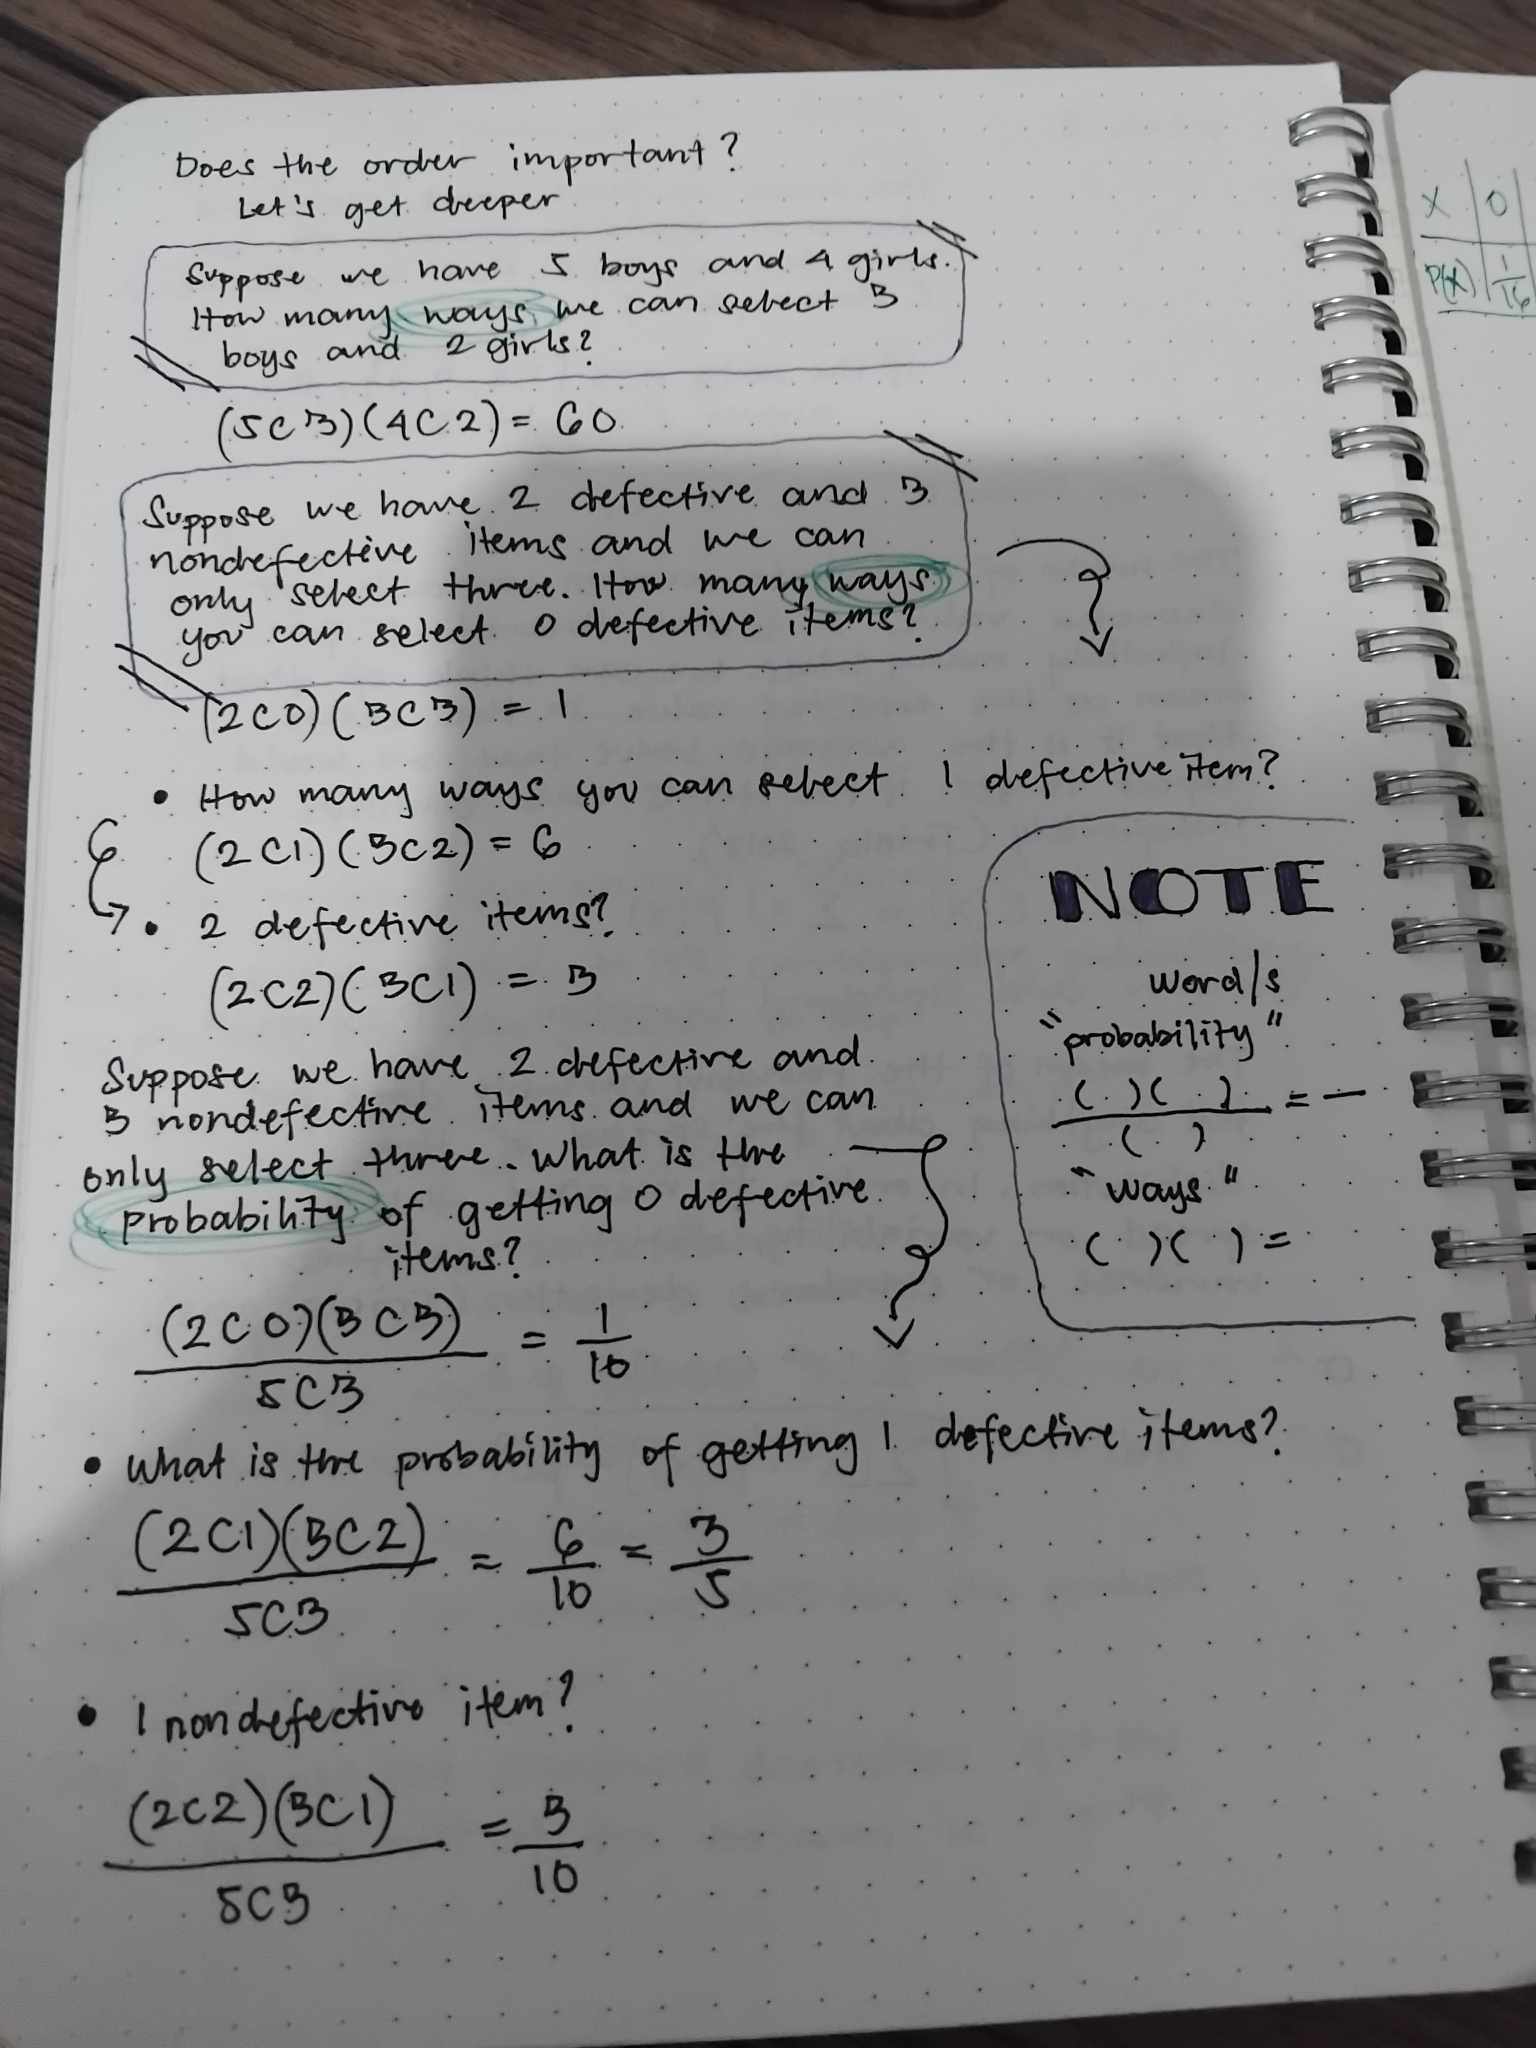 Does the order important?
Let's get deeper
Suppose we have 5 boys and 4 girls.
How many ways we can select 3
boys and 2 girls?
(5C3)(4C2) = 60
Suppose we have 2 defective and 3
nondefective items and we can
only select three. How many ways
you can select 0 defective items?
(2C0)(3C3) = 1
• How many ways you can select 1 defective item?
(2C1)(3C2) = 6
• 2 defective items?
(2C2)(3C1) = 3
Suppose we have 2 defective and
3 nondefective items and we can
only select three. What is the
probability of getting 0 defective
items?
(2C0)(3C3) / 5C3 = 1/10
• What is the probability of getting 1 defective items?
(2C1)(3C2) / 5C3 = 6/10 = 3/5
• 1 nondefective item?
(2C2)(3C1) / 5C3 = 3/10
NOTE
word/s
"probability"
( )( ) / ( ) = —
"ways"
( )( ) =
X 0
P(X) 1/16